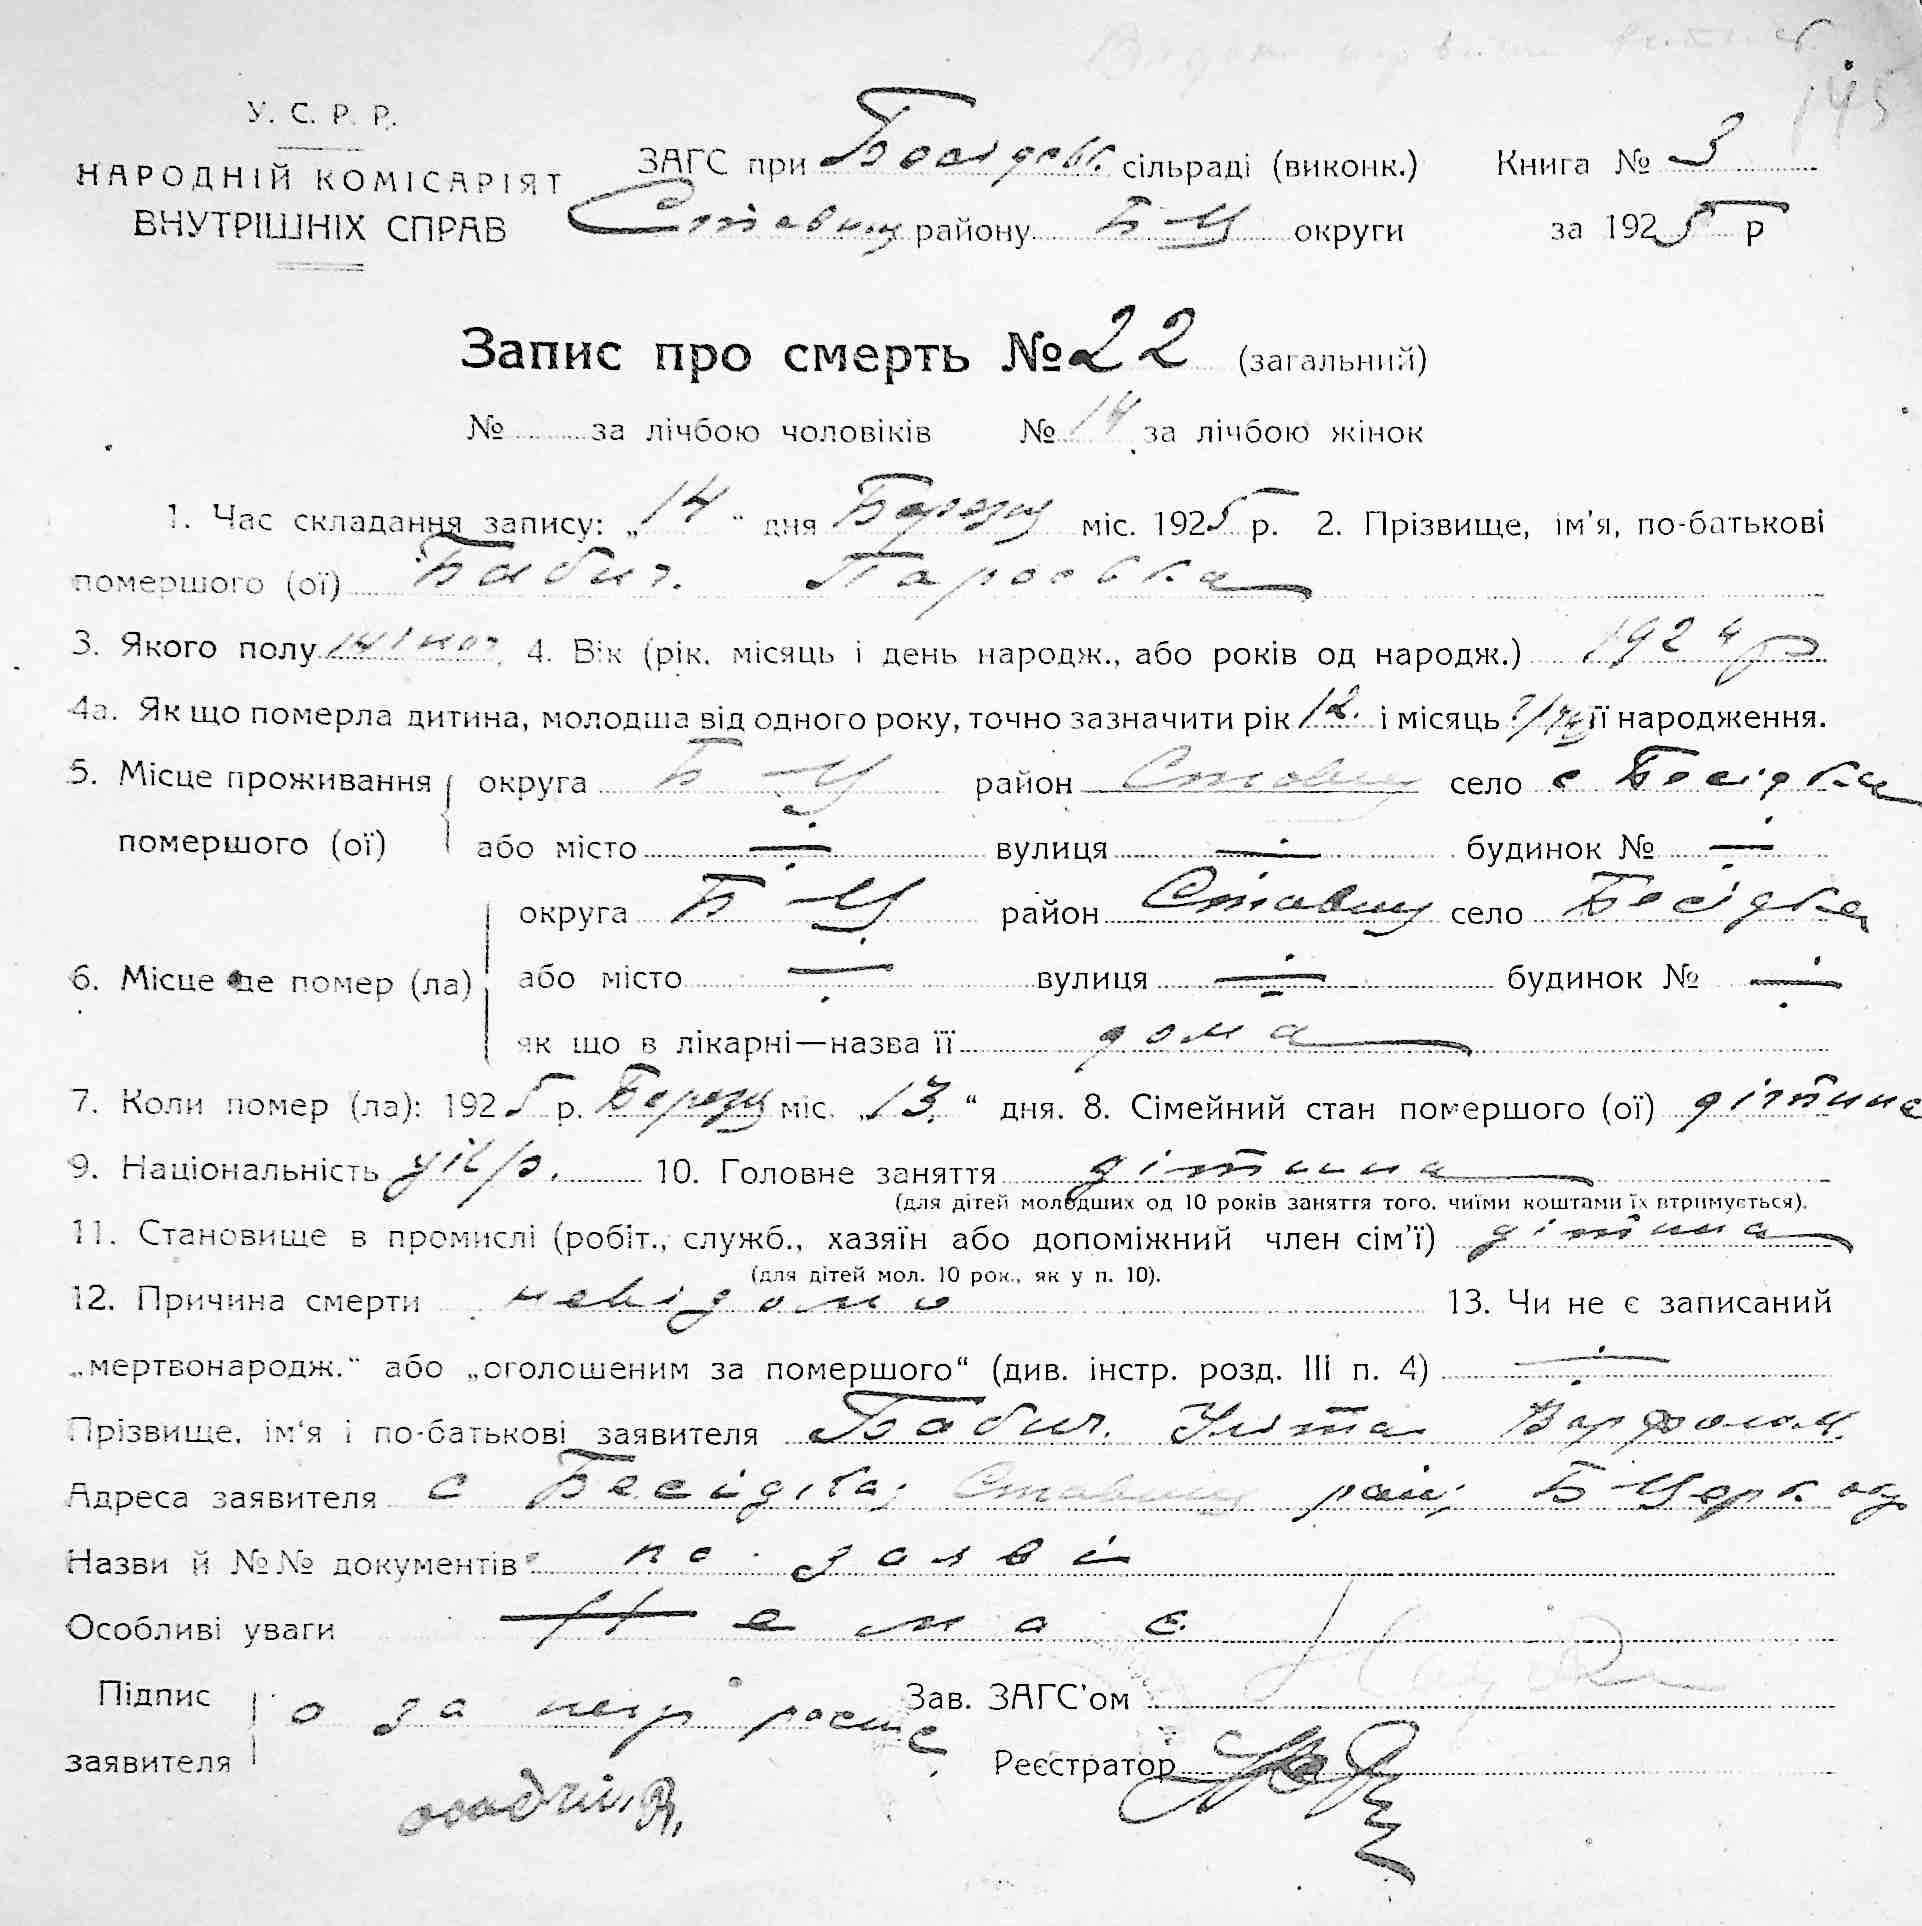 145
У. С. Р. Р.
НАРОДНІЙ КОМІСАРІЯТ
ВНУТРІШНІХ СПРАВ
ЗАГС при Бесідовк. сільраді (виконк.) Книга № 3
Ставищ району Б Ц округи за 1925 р
Запис про смерть № 22 (загальний)
№ за лічбою чоловіків № 14 за лічбою жінок
1. Час складання запису: „14“ дня Березн міс. 1925 р. 2. Прізвище, ім'я, по-батькові
помершого (ої) Бабич. Паросвка
3. Якого полу жіноч. 4. Вік (рік, місяць і день народж., або років од народж.) 1924 р
4а. Як що померла дитина, молодша від одного року, точно зазначити рік і місяць її народження.
5. Місце проживання помершого (ої) округа Б Ц район Ставищ село с Бесідка
або місто — вулиця — будинок № —
6. Місце де помер (ла) округа Б Ц район Ставищ село Бесідка
або місто — вулиця — будинок № —
як що в лікарні—назва її дома
7. Коли помер (ла): 1925 р. Березн міс. „13.“ дня. 8. Сімейний стан помершого (ої) дітина
9. Національність укр. 10. Головне заняття дітина
(для дітей молодших од 10 років заняття того, чиїми коштами їх втримується).
11. Становище в промислі (робіт., служб., хазяїн або допоміжний член сім'ї) дітина
(для дітей мол. 10 рок., як у п. 10).
12. Причина смерти невідомо 13. Чи не є записаний
„мертвонародж.“ або „оголошеним за помершого“ (див. інстр. розд. III п. 4) —
Прізвище, ім'я і по-батькові заявителя Бабич. Варфолом.
Адреса заявителя с Бесідка; Ставищ рай; Б Церк. окр
Назви й №№ документів по заяві
Особливі уваги Немає
Підпис заявителя о за негр росп
Зав. ЗАГС'ом
Реєстратор